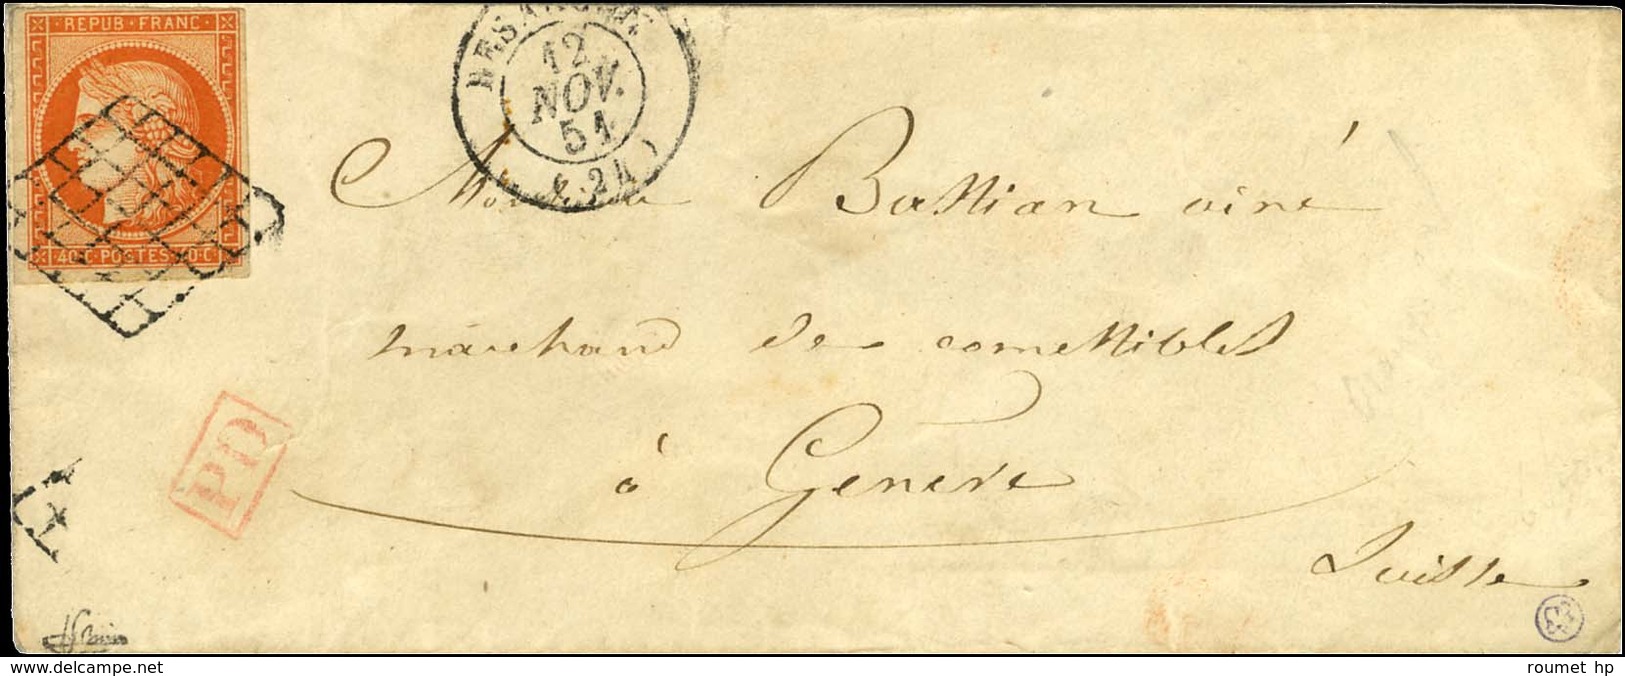 REPUB·FRANC·
40·C·POSTES·40·C·
BESANÇON
12
NOV.
51
(24)
Monsieur Bastian ainé
marchand de comestibles
à Genève
Suisse
PD
delcampe.net
roumet hp